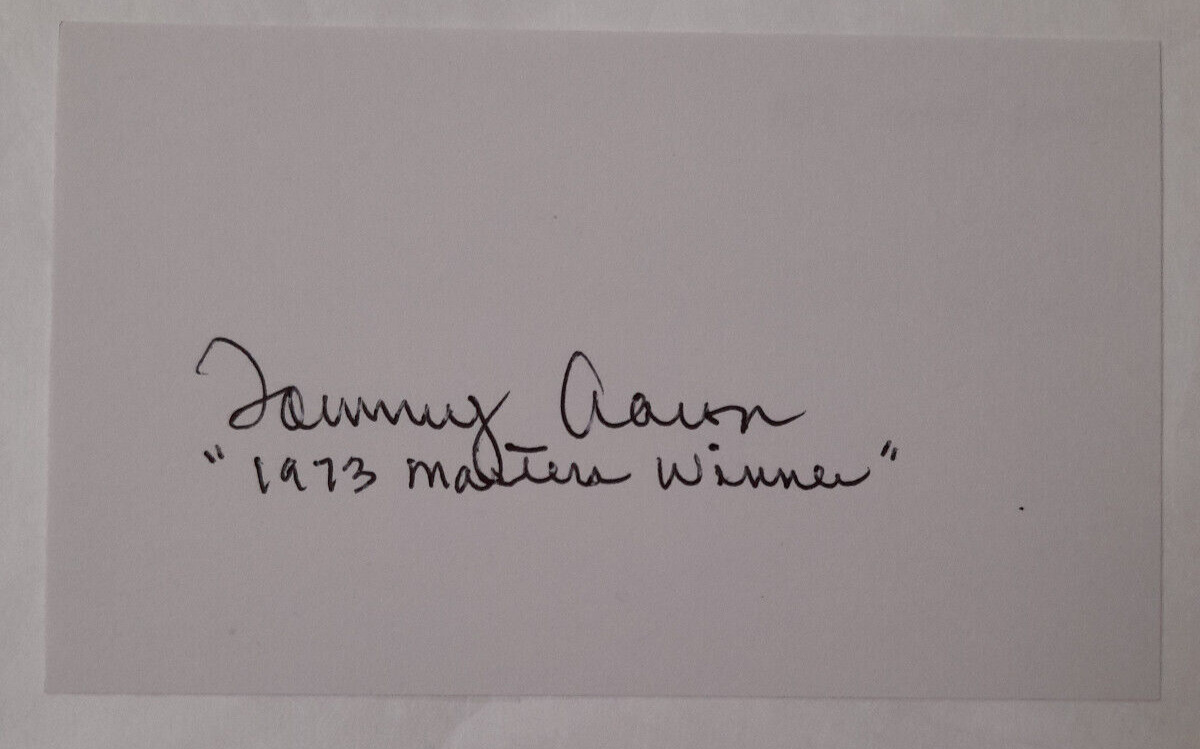 Tommy Aaron
"1973 Masters Winner"